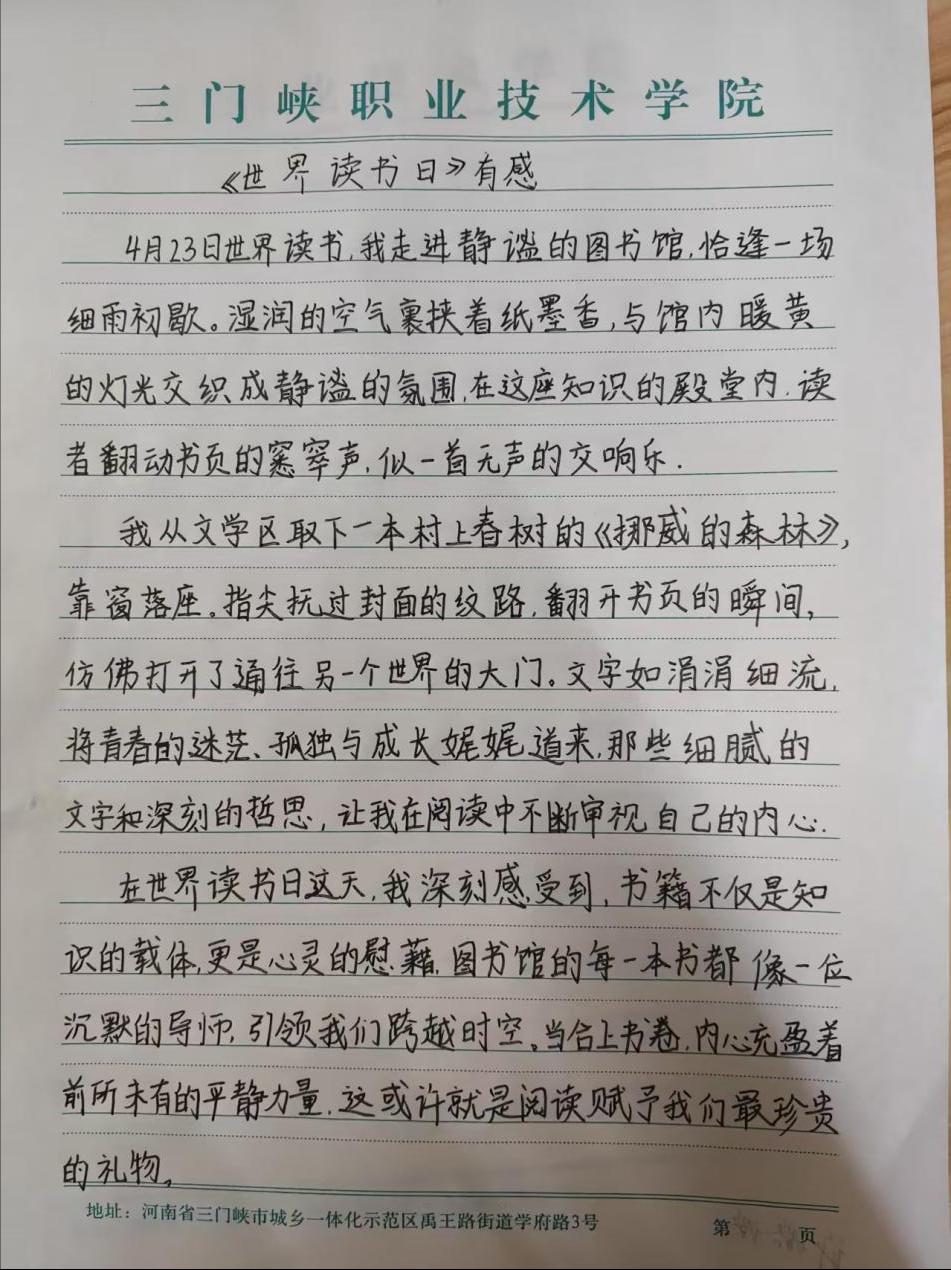 三门峡职业技术学院
《世界读书日》有感
4月23日世界读书,我走进静谧的图书馆,恰逢一场
细雨初歇。湿润的空气裹挟着纸墨香,与馆内暖黄
的灯光交织成静谧的氛围,在这座知识的殿堂内,读
者翻动书页的窸窣声,似一首无声的交响乐.
我从文学区取下一本村上春树的《挪威的森林》,
靠窗落座。指尖抚过封面的纹路,翻开书页的瞬间,
仿佛打开了通往另一个世界的大门。文字如涓涓细流,
将青春的迷茫、孤独与成长娓娓道来,那些细腻的
文字和深刻的哲思,让我在阅读中不断审视自己的内心.
在世界读书日这天,我深刻感受到,书籍不仅是知
识的载体,更是心灵的慰藉,图书馆的每一本书都像一位
沉默的导师,引领我们跨越时空。当合上书卷,内心充盈着
前所未有的平静力量,这或许就是阅读赋予我们最珍贵
的礼物。
地址：河南省三门峡市城乡一体化示范区禹王路街道学府路3号
第 页